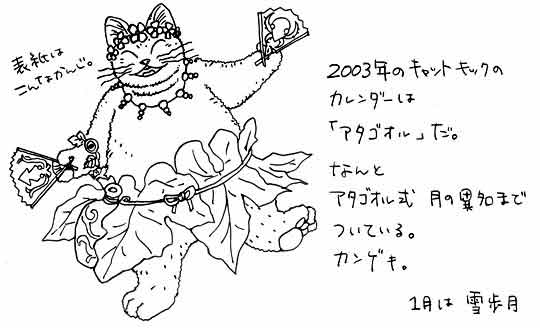 表紙は
こんなかんじ。
2003年のキャットキックの
カレンダーは
「アタゴオル」だ。
なんと
アタゴオル式 月の異名まで
ついている。
カンゲキ。
1月は 雪歩月